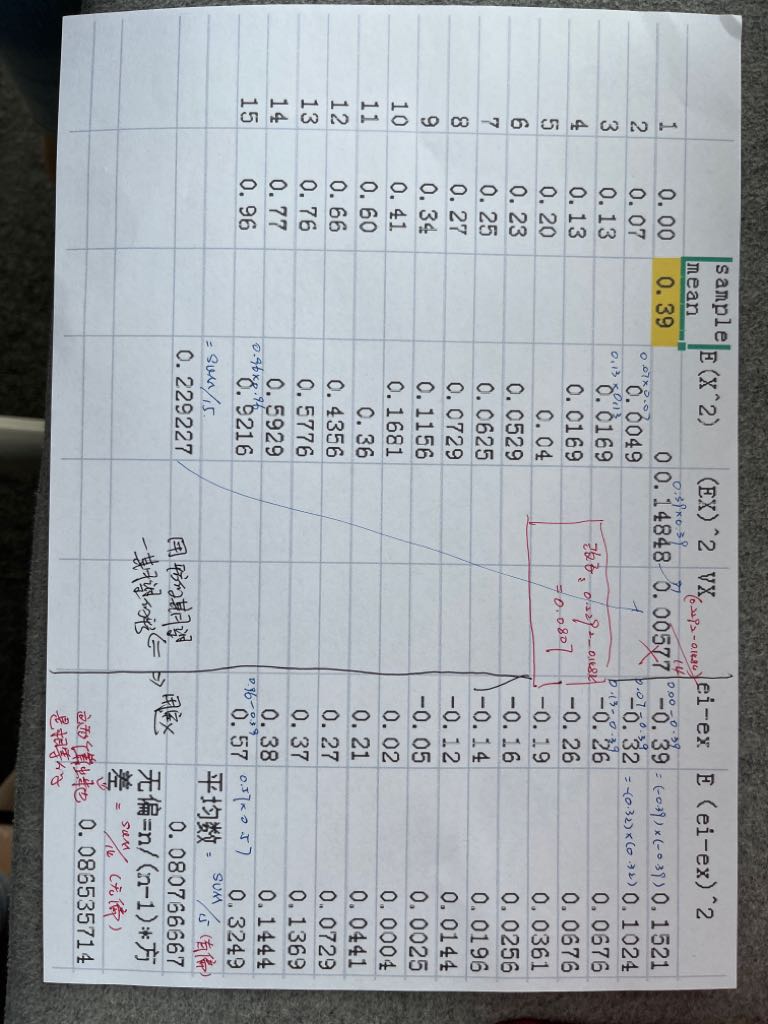 sample mean E(X^2) (EX)^2 VX ei-ex E(ei-ex)^2
(0.2292-0.1484)
0.39×0.39 0.00-0.39 =(-0.39)×(-0.39)
1 0.00 0.39 0 0.14848 0.00577 -0.39 0.1521
0.07×0.07 0.07-0.39 =-(0.32)×(0.32)
2 0.07 0.0049 -0.32 0.1024
0.13×0.13 0.13-0.39
3 0.13 0.0169 -0.26 0.0676
4 0.13 0.0169 -0.26 0.0676
=0.0807
5 0.20 0.04 -0.19 0.0361
6 0.23 0.0529 -0.16 0.0256
7 0.25 0.0625 -0.14 0.0196
8 0.27 0.0729 -0.12 0.0144
9 0.34 0.1156 -0.05 0.0025
10 0.41 0.1681 0.02 0.0004
11 0.60 0.36 0.21 0.0441
12 0.66 0.4356 0.27 0.0729
13 0.76 0.5776 0.37 0.1369
14 0.77 0.5929 0.38 0.1444
0.96×0.96 0.96-0.39 0.57×0.57
15 0.96 0.9216 0.57 0.3249
=sum/15 平均数 =sum/15 (有偏)
0.229227 0.080766667
无偏=n/(n-1)*方差
=sum/14 (无偏)
0.086535714